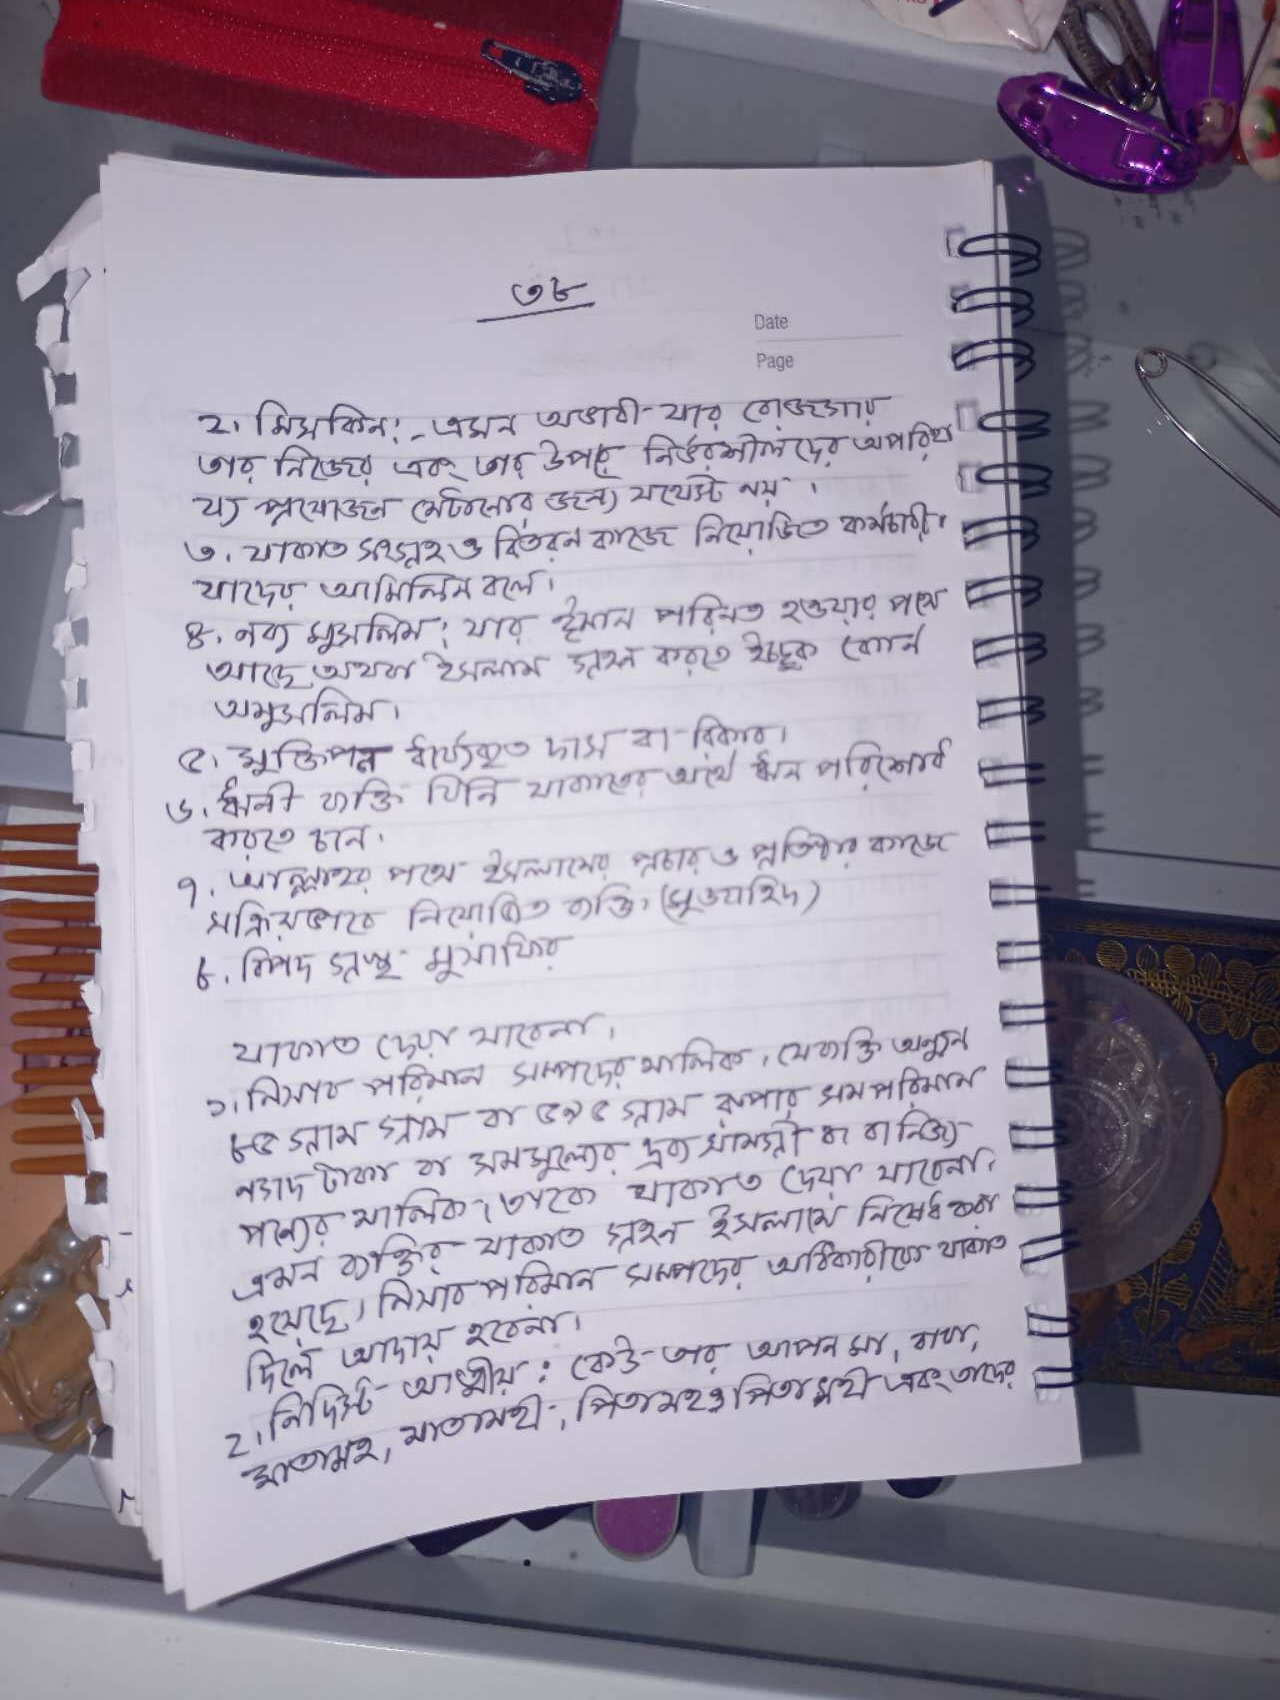 ৩৮
Date
Page
২। মিসকিন:- এমন অভাবী যার রোজগার
তার নিজের এবং তার উপরে নির্ভরশীলদের অপরিহা
য্য প্রয়োজন মেটানোর জন্য যথেস্ট নয়।
৩. যাকাত সংগ্রহ ও বিতরন কাজে নিয়োজিত কর্মচারী।
যাদের আমিলিন বলে।
৪. নব্য মুসলিম: যার ইমান পরিনত হওয়ার পথে
আছে অথবা ইসলাম গ্রহন করতে ইচ্ছুক কোন
অমুসলিম।
৫। মুক্তিপন ধার্য্যেকৃত দাস বা রিকাব।
৬. ঋনী ব্যক্তি যিনি যাকাতের অর্থে ঋন পরিশোধ
করতে চান.
৭. আল্লাহর পথে ইসলামের প্রচার ও প্রতিষ্ঠার কাজে
সক্রিয়ভাবে নিয়োজিত ব্যক্তি।
৮. বিপদ গ্রস্থ মুসাফির
যাকাত দেয়া যাবেনা।
১। নিসাব পরিমান সম্পদের মালিক। যেব্যক্তি অন্যুন
৮৫ গ্রাম গ্রাম বা ৫৯৫ গ্রাম রূপার সম পরিমান
নগদ টাকা বা সমমূল্যের দ্রব্য সামগ্রী বা বানিজ্য
পন্যের মালিক, তাকে যাকাত দেয়া যাবেনা।
এমন ব্যক্তির যাকাত গ্রহন ইসলামে নিষেধ করা
হয়েছে। নিসাব পরিমান সম্পদের অধিকারীকে যাকাত
দিলে আদায় হবেনা।
২। নির্দিস্ট আত্মীয়: কেউ তার আপন মা, বাবা,
মাতামহ, মাতামহী, পিতামহ ও পিতামহী এবং তাদের